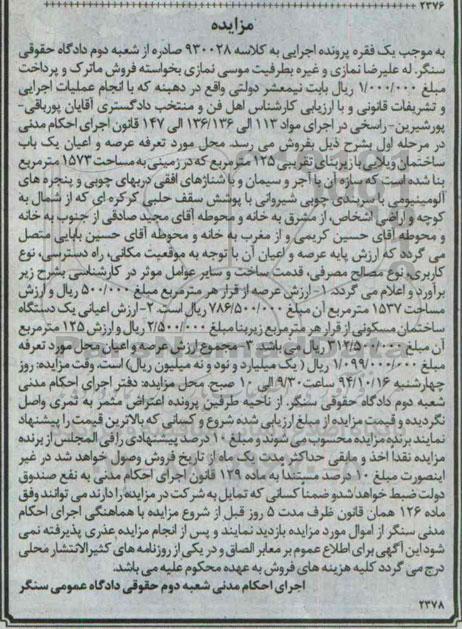 ۲۳۷۶
مزایده
به موجب یک فقره پرونده اجرایی به کلاسه ۹۳۰۰۲۸ صادره از شعبه دوم دادگاه حقوقی
سنگر. له علیرضا نمازی و غیره بطرفیت موسی نمازی بخواسته فروش ماترک و پرداخت
مبلغ ۱/۰۰۰/۰۰۰ ریال بابت نیمعشر دولتی واقع در دهبنه که با انجام عملیات اجرایی
و تشریفات قانونی و با ارزیابی کارشناس اهل فن و منتخب دادگستری آقایان پورباقی-
پورشیرین- راسخی در اجرای مواد ۱۱۳ الی ۱۳۶/۱۳۶ الی ۱۴۷ قانون اجرای احکام مدنی
در مرحله اول بشرح ذیل بفروش می رسد. محل مورد تعرفه عرصه و اعیان یک باب
ساختمان ویلایی با زیربنای تقریبی ۱۲۵ مترمربع که در زمینی به مساحت ۱۵۷۳ مترمربع
بنا شده است که سازه آن با آجر و سیمان و با شناژهای افقی دربهای چوبی و پنجره های
آلومینیومی با سربندی چوبی شیروانی با پوشش سقف حلبی کرکره ای که از شمال به
کوچه و اراضی اشخاص، از مشرق به خانه و محوطه آقای مجید صادقی از جنوب به خانه
و محوطه آقای حسین کریمی و از مغرب به خانه و محوطه آقای حسین بابایی متصل
می گردد که ارزش پایه عرصه و اعیان آن با توجه به موقعیت مکانی، راه دسترسی، نوع
کاربری، نوع مصالح مصرفی، قدمت ساخت و سایر عوامل موثر در کارشناسی بشرح زیر
برآورد و اعلام می گردد: ۱- ارزش عرصه از قرار هر مترمربع مبلغ ۵۰۰/۰۰۰ ریال و ارزش
مساحت ۱۵۳۷ مترمربع آن مبلغ ۷۸۶/۵۰۰/۰۰۰ ریال است. ۲- ارزش اعیانی یک دستگاه
ساختمان مسکونی از قرار هر مترمربع زیربنا مبلغ ۲/۵۰۰/۰۰۰ ریال و ارزش ۱۲۵ مترمربع
آن مبلغ ۳۱۲/۵۰۰/۰۰۰ ریال می باشد. ۳- مجموع ارزش عرصه و اعیان محل مورد تعرفه
۱/۰۹۹/۰۰۰/۰۰۰ ریال ( یک میلیارد و نود و نه میلیون ریال) است. وقت مزایده: روز
چهارشنبه ۹۴/۱۰/۱۶ ساعت ۹/۳۰ الی ۱۰ صبح. محل مزایده: دفتر اجرای احکام مدنی
شعبه دوم دادگاه حقوقی سنگر. از ناحیه طرفین پرونده اعتراض مثمر به ثمری واصل
نگردیده و قیمت مزایده از مبلغ ارزیابی شده شروع و کسانی که بالاترین قیمت را پیشنهاد
نمایند برنده مزایده محسوب می شوند و مبلغ ۱۰ درصد پیشنهادی را فی المجلس از برنده
مزایده نقدا اخذ و مابقی حداکثر مدت یک ماه از تاریخ فروش وصول خواهد شد در غیر
اینصورت مبلغ ۱۰ درصد مستندا به ماده ۱۲۹ قانون اجرای احکام مدنی به نفع صندوق
دولت ضبط خواهد شد و ضمنا کسانی که تمایل به شرکت در مزایده را دارند می توانند وفق
ماده ۱۲۶ همان قانون ظرف مدت ۵ روز قبل از شروع مزایده با هماهنگی اجرای احکام
مدنی سنگر از اموال مورد مزایده بازدید نمایند و پس از انجام مزایده عذری پذیرفته نمی
شود این آگهی برای اطلاع عموم بر معابر الصاق و در یکی از روزنامه های کثیرالانتشار محلی
درج می گردد کلیه هزینه های فروش به عهده محکوم علیه می باشد.
اجرای احکام مدنی شعبه دوم حقوقی دادگاه عمومی سنگر
۲۳۷۸